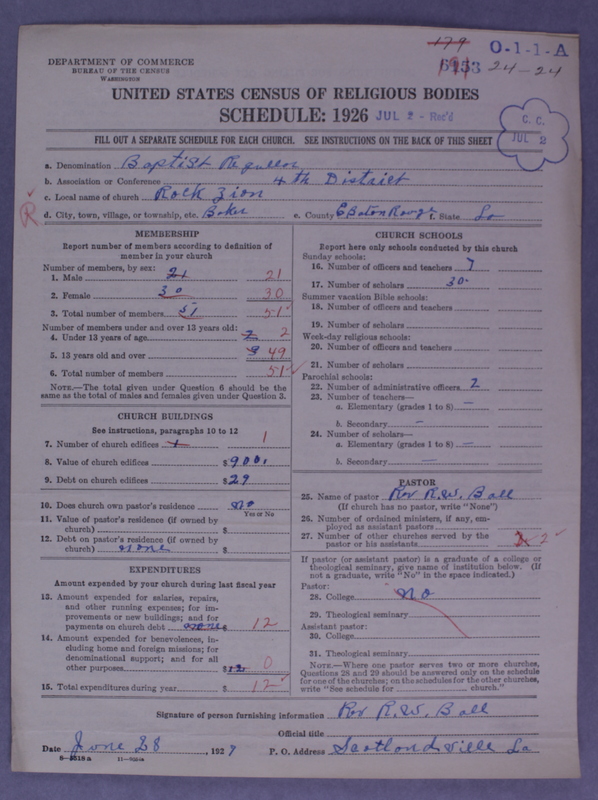 DEPARTMENT OF COMMERCE
BUREAU OF THE CENSUS
WASHINGTON
179
191
O-1-1-A
6153 24-24
UNITED STATES CENSUS OF RELIGIOUS BODIES
SCHEDULE: 1926 JUL 2 - Rec'd
C. C.
JUL 2
FILL OUT A SEPARATE SCHEDULE FOR EACH CHURCH. SEE INSTRUCTIONS ON THE BACK OF THIS SHEET
a. Denomination Baptist
b. Association or Conference 4th District
c. Local name of church Rock Zion
R d. City, town, village, or township, etc. Baker e. County E Baton Rouge f. State La
MEMBERSHIP
Report number of members according to definition of
member in your church
Number of members, by sex:
1. Male 21 21
2. Female 30 30
3. Total number of members 51 51
Number of members under and over 13 years old:
4. Under 13 years of age 2 2
5. 13 years old and over 9 49
6. Total number of members 51
NOTE.—The total given under Question 6 should be the
same as the total of males and females given under Question 3.
CHURCH BUILDINGS
See instructions, paragraphs 10 to 12
7. Number of church edifices 1 1
8. Value of church edifices $900.
9. Debt on church edifices $29
10. Does church own pastor's residence no
Yes or No
11. Value of pastor's residence (if owned by
church) $
12. Debt on pastor's residence (if owned by
church) none $
EXPENDITURES
Amount expended by your church during last fiscal year
13. Amount expended for salaries, repairs,
and other running expenses; for im-
provements or new buildings; and for
payments on church debt none $ 12
14. Amount expended for benevolences, in-
cluding home and foreign missions; for
denominational support; and for all
other purposes $12 0
15. Total expenditures during year $ 12
CHURCH SCHOOLS
Report here only schools conducted by this church
Sunday schools:
16. Number of officers and teachers 7
17. Number of scholars 30-
Summer vacation Bible schools:
18. Number of officers and teachers
19. Number of scholars
Week-day religious schools:
20. Number of officers and teachers
21. Number of scholars
Parochial schools:
22. Number of administrative officers 2
23. Number of teachers—
a. Elementary (grades 1 to 8) —
b. Secondary —
24. Number of scholars—
a. Elementary (grades 1 to 8) —
b. Secondary —
PASTOR
25. Name of pastor Rev R.W. Ball
(If church has no pastor, write "None")
26. Number of ordained ministers, if any, em-
ployed as assistant pastors
27. Number of other churches served by the
pastor or his assistants 2
If pastor (or assistant pastor) is a graduate of a college or
theological seminary, give name of institution below. (If
not a graduate, write "No" in the space indicated.)
Pastor:
28. College no
29. Theological seminary
Assistant pastor:
30. College
31. Theological seminary
NOTE.—Where one pastor serves two or more churches,
Questions 28 and 29 should be answered only on the schedule
for one of the churches; on the schedules for the other churches,
write "See schedule for church."
Signature of person furnishing information Rev R.W. Ball
Official title
Date June 28, 1927 P. O. Address Scotlandville La
8-5518a 11-9664a